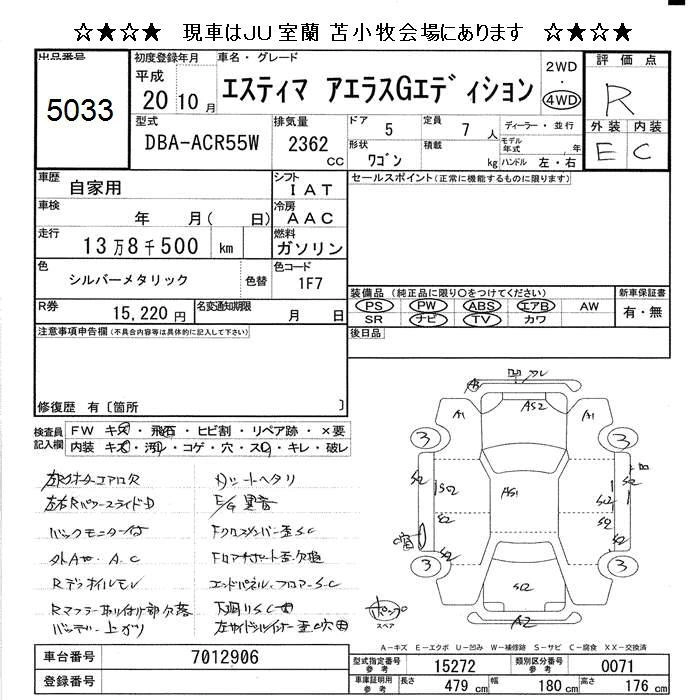 ☆★☆★ 現車はJU室蘭 苫小牧会場にあります ☆★☆★
出品番号
5033
初度登録年月
平成
20 10 月
車名・グレード
エスティマ アエラスGエディション
2WD
・
4WD
評価点
R
外装 内装
E C
型式
DBA-ACR55W
排気量
2362
CC
ドア 5
定員 7 人
形状 ワゴン
積載
kg
ディーラー・並行
モデル年式
年
ハンドル 左・右
車歴
自家用
シフト
IAT
車検
年 月( 日)
冷房
AAC
走行
13万8千500 km
燃料
ガソリン
色
シルバーメタリック
色替
色コード
1F7
R券
15,220円
名変通知期限
月 日
セールスポイント(正常に機能するものに限ります)
装備品 (純正品に限り〇をつけてください)
新車保証書
PS PW ABS エアB AW
SR ナビ TV カワ
有・無
後日品
注意事項申告欄(不具合内容等は具体的に記入して下さい)
修復歴 有〔箇所 〕
検査員記入欄
FW キズ・飛石・ヒビ割・リペア跡・×要
内装 キズ・汚レ・コゲ・穴・スレ・キレ・破レ
左右RパワースライドD
バックモニター付
外Aw. A.C
Rデフオイルモレ
Rマフラー取り付け部分落
バッテリー上がり
シートヘタリ
E/G異音
Fクロスメンバー歪S.C
エンドパネル.フロアーS.C
A1
AS2
A1
3
3
S2
S2
S2
AS1
S2
S2
S2
S2
3
3
S2
AS2
スペア
A-キズ E-エクボ U-凹み W-補修跡 S-サビ C-腐食 XX-交換済
車台番号
7012906
登録番号
型式指定番号
参考
15272
類別区分番号
参考
0071
車庫証明用
参考
長さ
479 cm
幅
180 cm
高さ
176 cm